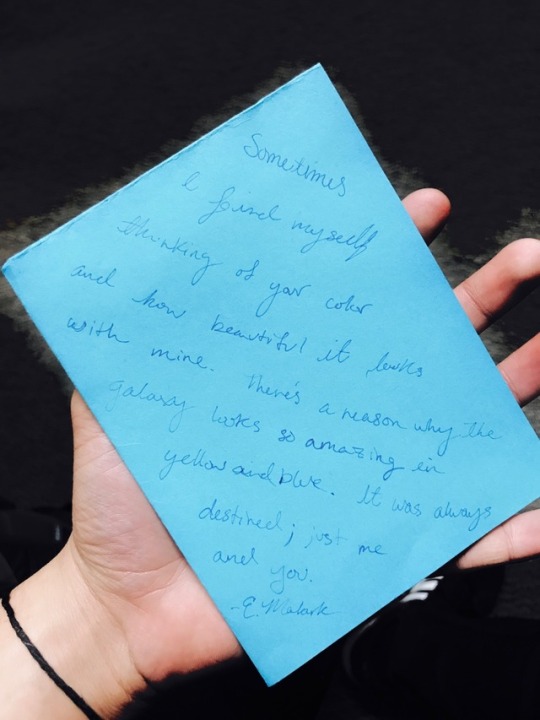 Sometimes
I find myself
thinking of your color
and how beautiful it looks
with mine. There's a reason why the
galaxy looks so amazing in
yellow and blue. It was always
destined; just me
and you.
-E. Malark